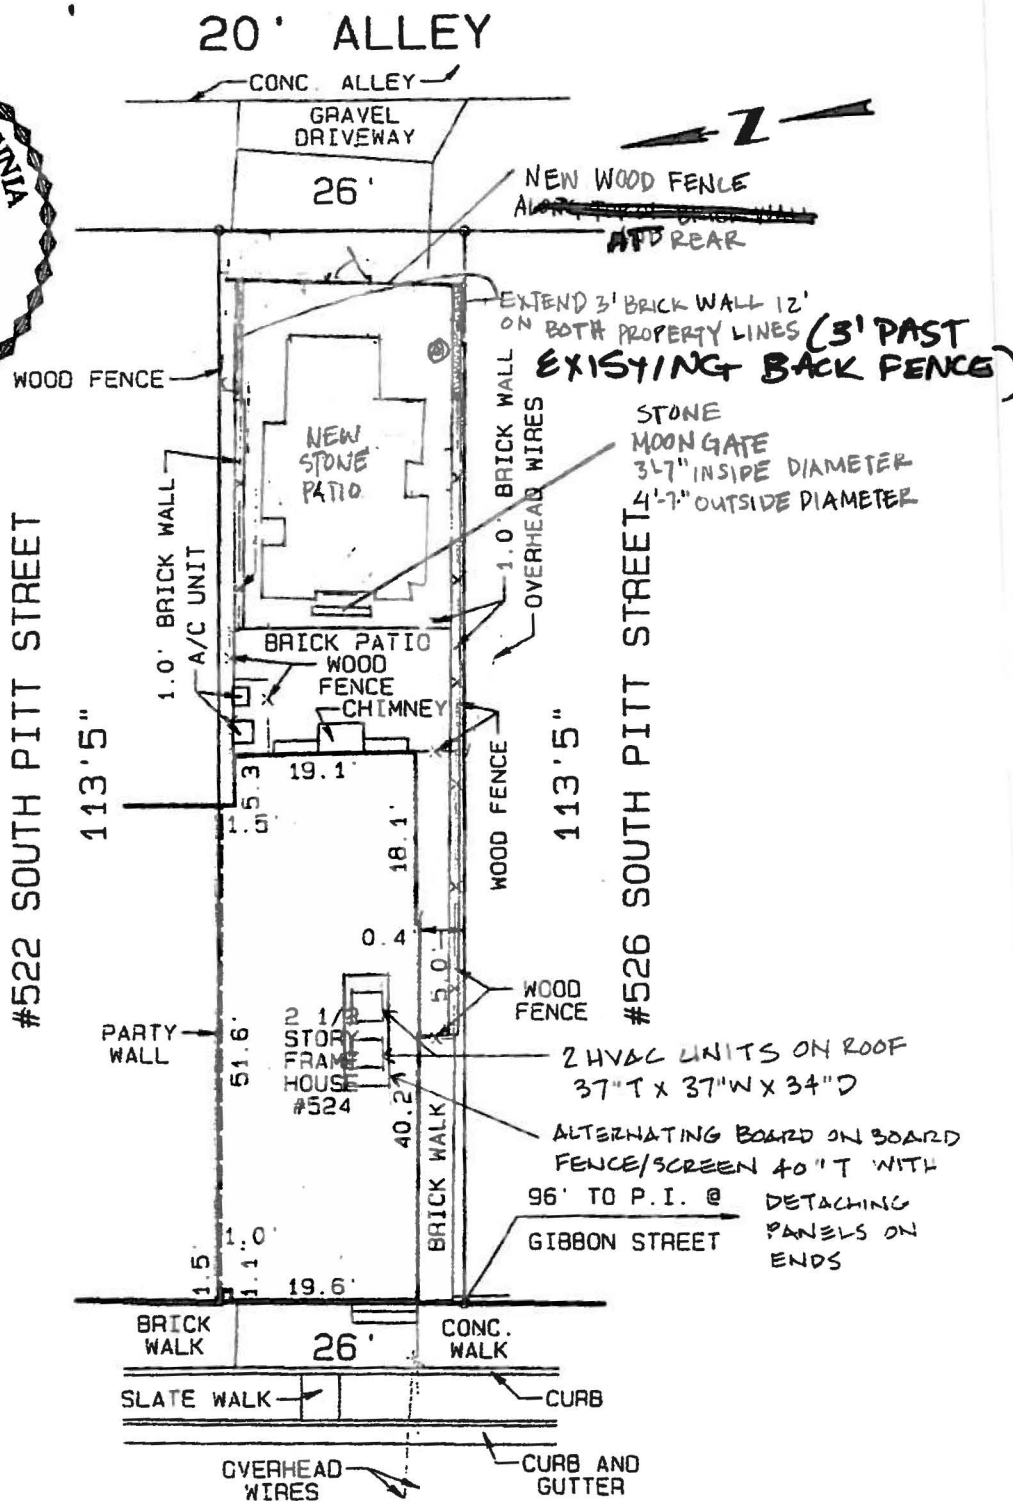 20' ALLEY
CONC. ALLEY
GRAVEL
DRIVEWAY
Z
26'
NEW WOOD FENCE
AT REAR
EXTEND 3' BRICK WALL 12'
ON BOTH PROPERTY LINES (3' PAST
EXISYING BACK FENCE)
WOOD FENCE
NEW
STONE
PATIO
STONE
MOONGATE
3'-7" INSIDE DIAMETER
4'-7" OUTSIDE DIAMETER
1.0' BRICK WALL
OVERHEAD WIRES
1.0' BRICK WALL
A/C UNIT
BRICK PATIO
WOOD
FENCE
CHIMNEY
#522 SOUTH PITT STREET
113'5"
113'5"
#526 SOUTH PITT STREET
WOOD FENCE
19.1'
5.3
1.5'
18.1'
0.4
5.0'
WOOD
FENCE
PARTY
WALL
51.6'
2 1/2
STORY
FRAME
HOUSE
#524
40.2'
BRICK WALK
2 HVAC UNITS ON ROOF
37"T X 37"W X 34"D
ALTERNATING BOARD ON BOARD
FENCE/SCREEN 40"T WITH
DETACHING
PANELS ON
ENDS
96' TO P.I. @
GIBBON STREET
1.0'
1.5'
1.1'
19.6'
BRICK
WALK
26'
CONC.
WALK
SLATE WALK
CURB
OVERHEAD
WIRES
CURB AND
GUTTER